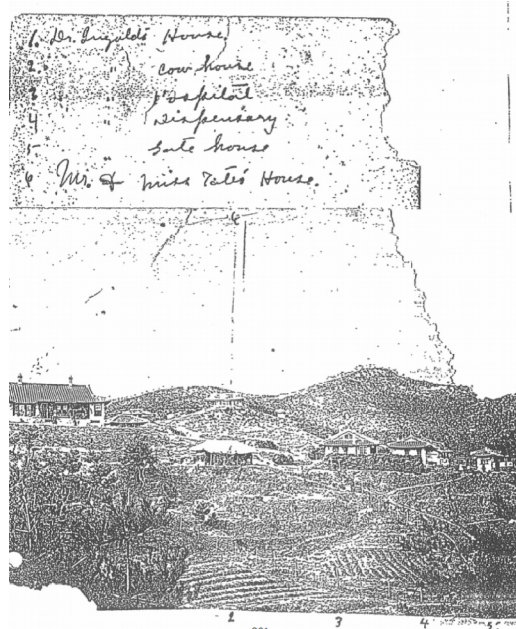 1. Dr. Ingold's House
2. " cow house
3 " Hospital
4 " Dispensary
5 " Gate house
6 Mr. & Miss Tate's House.
6
1 3 4 5